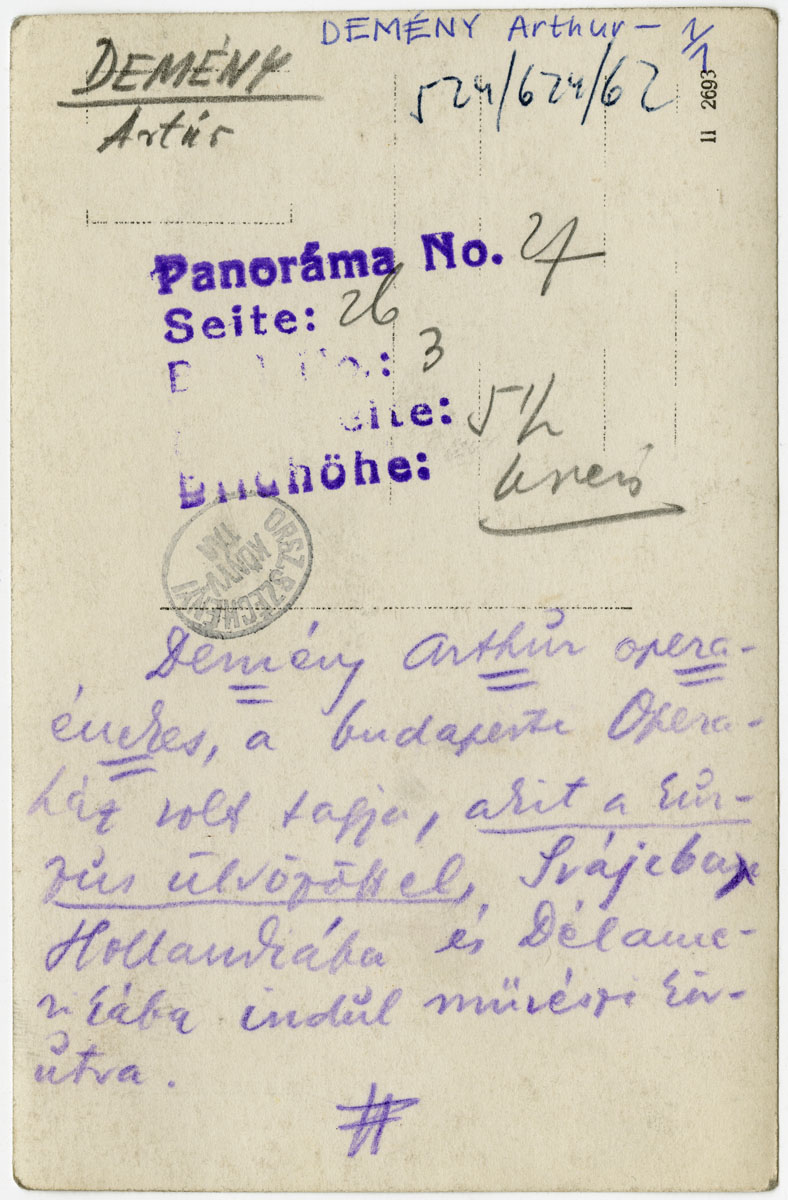 DEMÉNY Arthur – 1/1
DEMÉNY
Artúr
524/624/62
11 2693
Panoráma No. 27
Seite: 26
3
eite: 5 1/2
Bildhöhe:
ORSZ. SZÉCHÉNYI
KÖNYV-
TÁR
Demény Arthúr opera-
énekes, a budapesti Opera-
ház volt tagja, akit a
Svájcba,
Hollandiába és Délame-
rikába indul művészi kör-
útra.